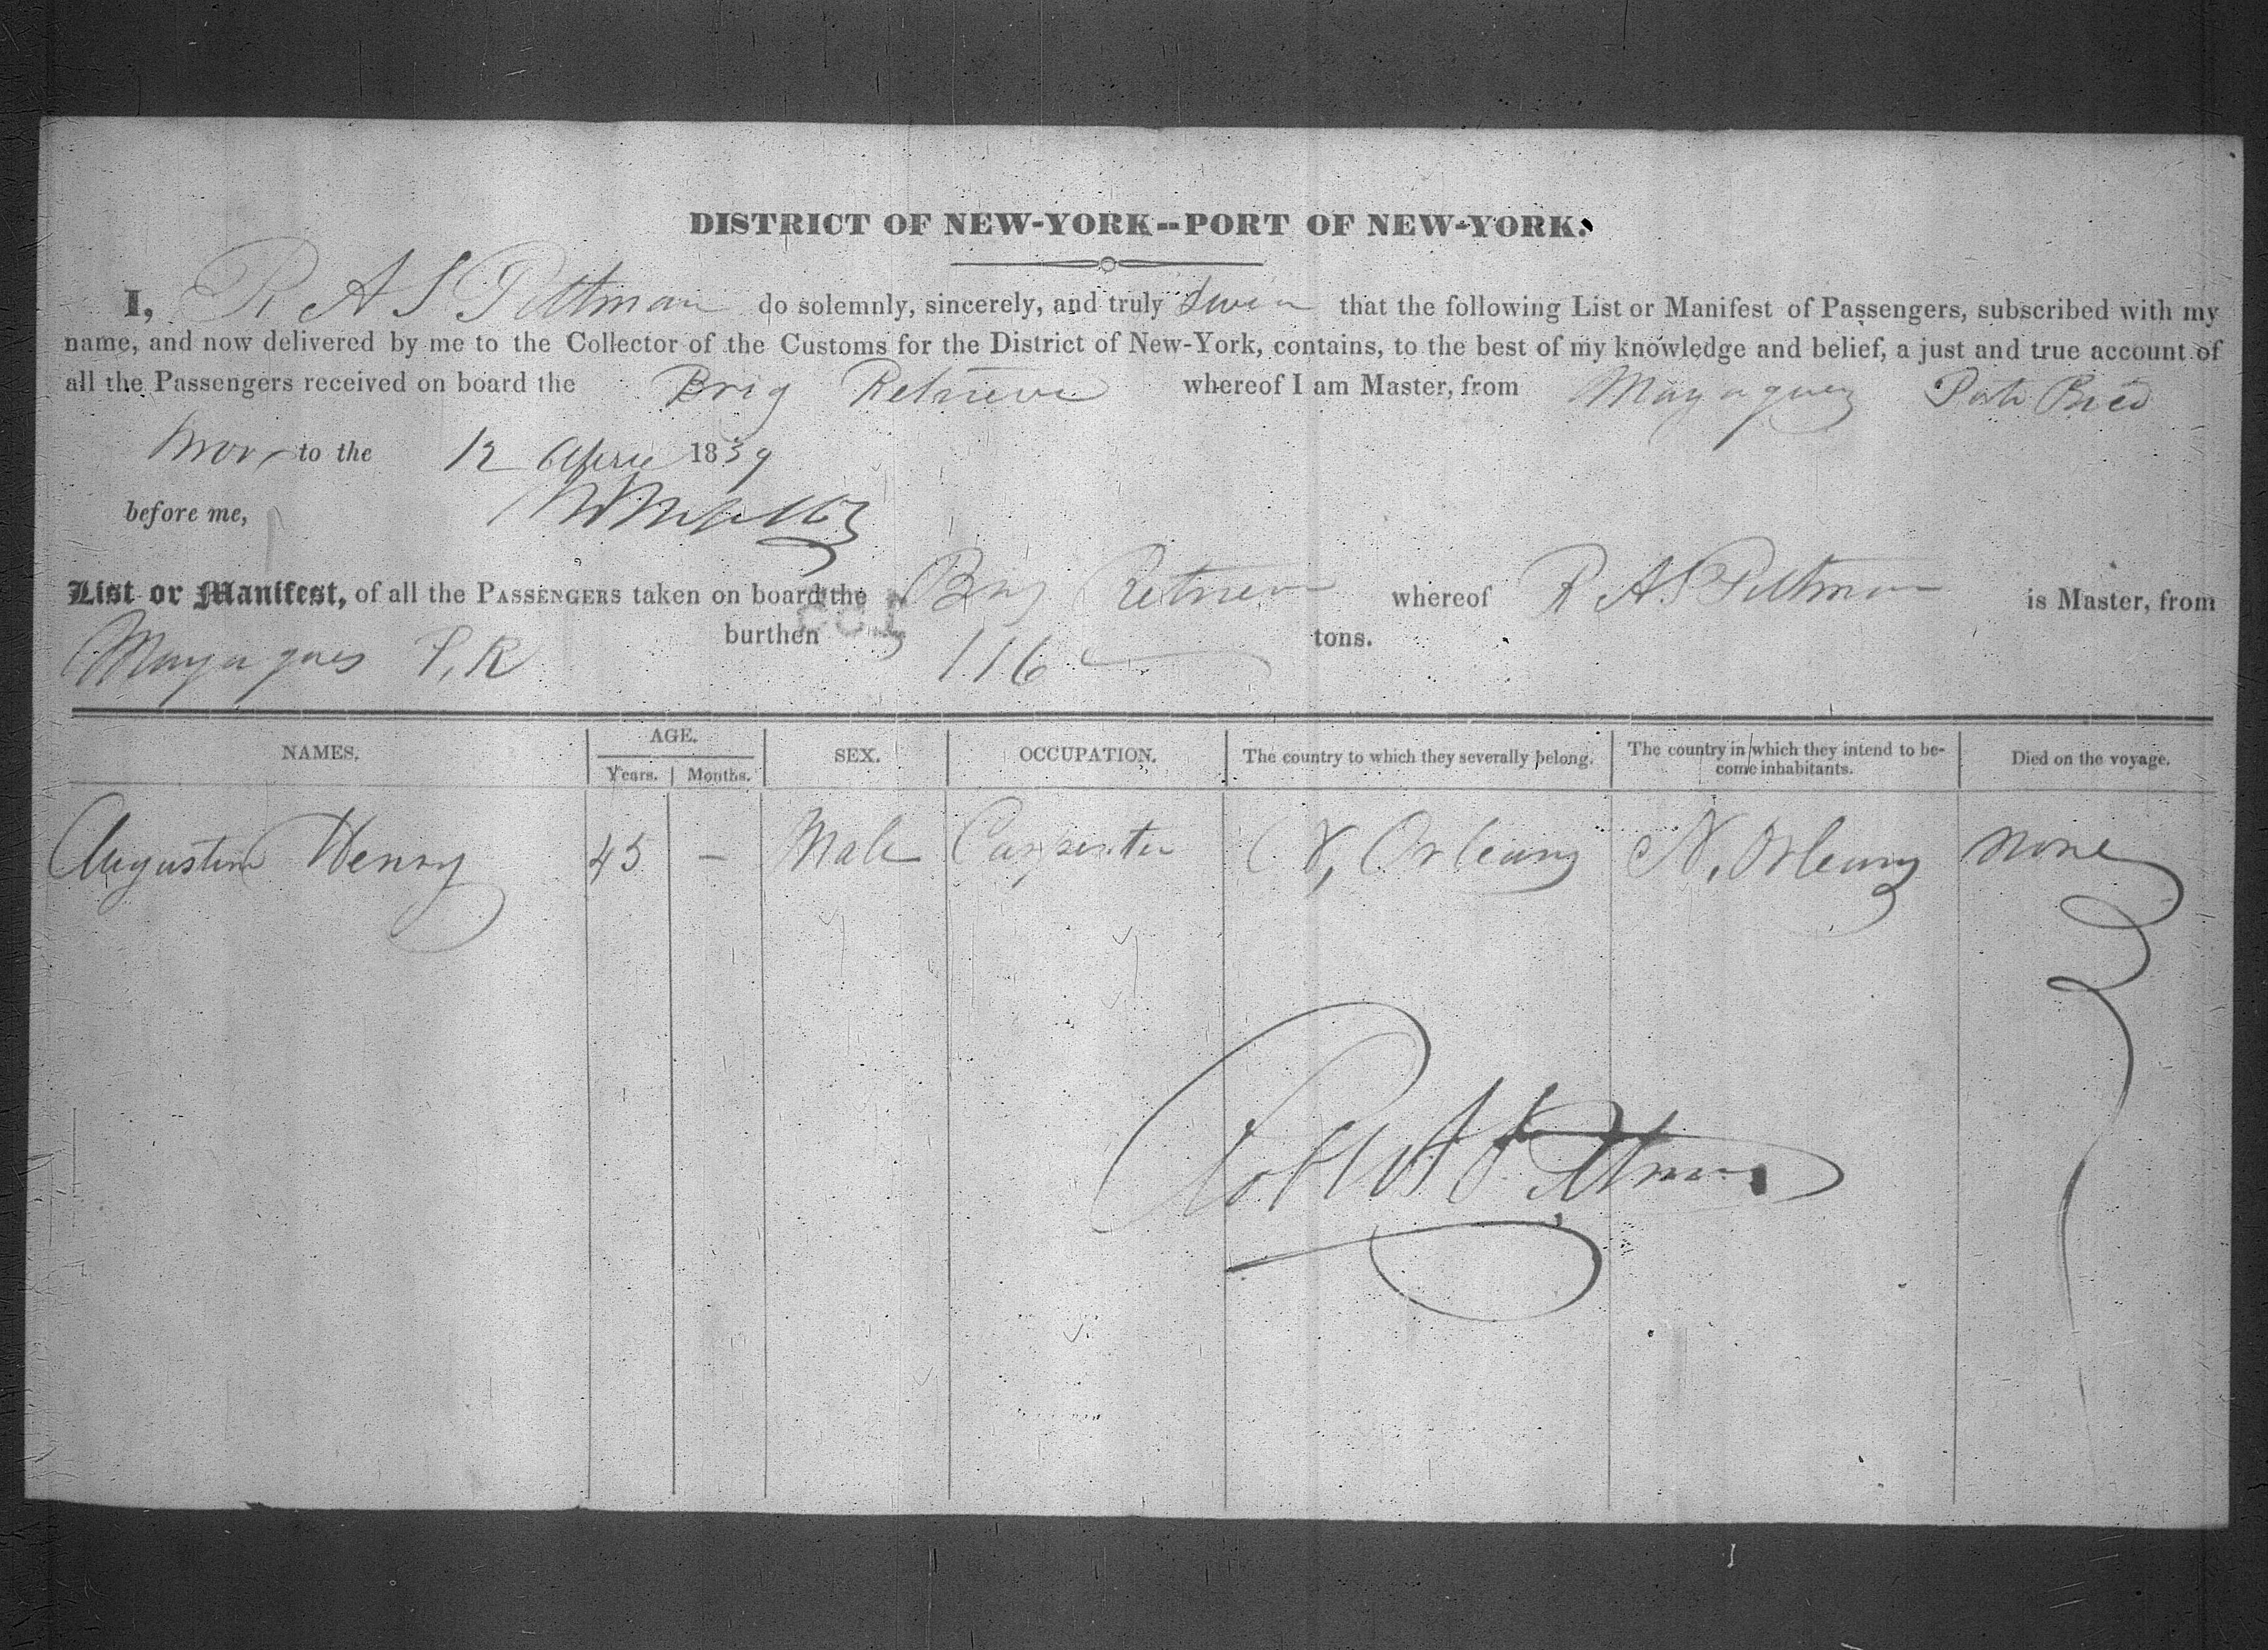 DISTRICT OF NEW-YORK--PORT OF NEW-YORK.
I, R A S Pittman do solemnly, sincerely, and truly swear that the following List or Manifest of Passengers, subscribed with my
name, and now delivered by me to the Collector of the Customs for the District of New-York, contains, to the best of my knowledge and belief, a just and true account of
all the Passengers received on board the Brig Retrieve whereof I am Master, from Mayaguez Porto Rico
to the 12 April 1839
before me,
List or Manifest, of all the PASSENGERS taken on board the Brig Retrieve whereof R A S Pittman is Master, from
Mayagues P, R burthen 116 tons.
NAMES. AGE. SEX. OCCUPATION. The country to which they severally belong. The country in which they intend to be-
come inhabitants. Died on the voyage.
Years. Months.
Augustin Henry 45 - Male Carpenter N, Orleans N, Orleans none
Robert A S Pittman